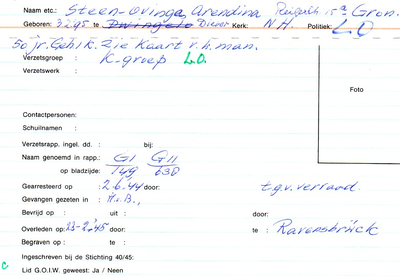 Naam etc.: Steen-Ovinga, Arendina Gron.
Geboren: 3.1.95 te Dwingelo Diever Kerk: N.H. Politiek:
L.O.
50 jr. Geh. k. Zie Kaart v.h. man.
Verzetsgroep : K-groep L.O.
Verzetswerk :
Foto
Contactpersonen:
Schuilnamen :
Verzetsrapp. ingel. dd. : bij:
Naam genoemd in rapp.: GI GII
op bladzijde: 149 630
Gearresteerd op : 2.6.44 door: t.g.v. verraad.
Gevangen gezeten in : H.v.B.,
Bevrijd op : uit : door:
Overleden op: 23-2-'45 door: te : Ravensbrück
Begraven op : te :
Ingeschreven bij de Stichting 40/45:
c Lid G.O.I.W. geweest: Ja / Neen